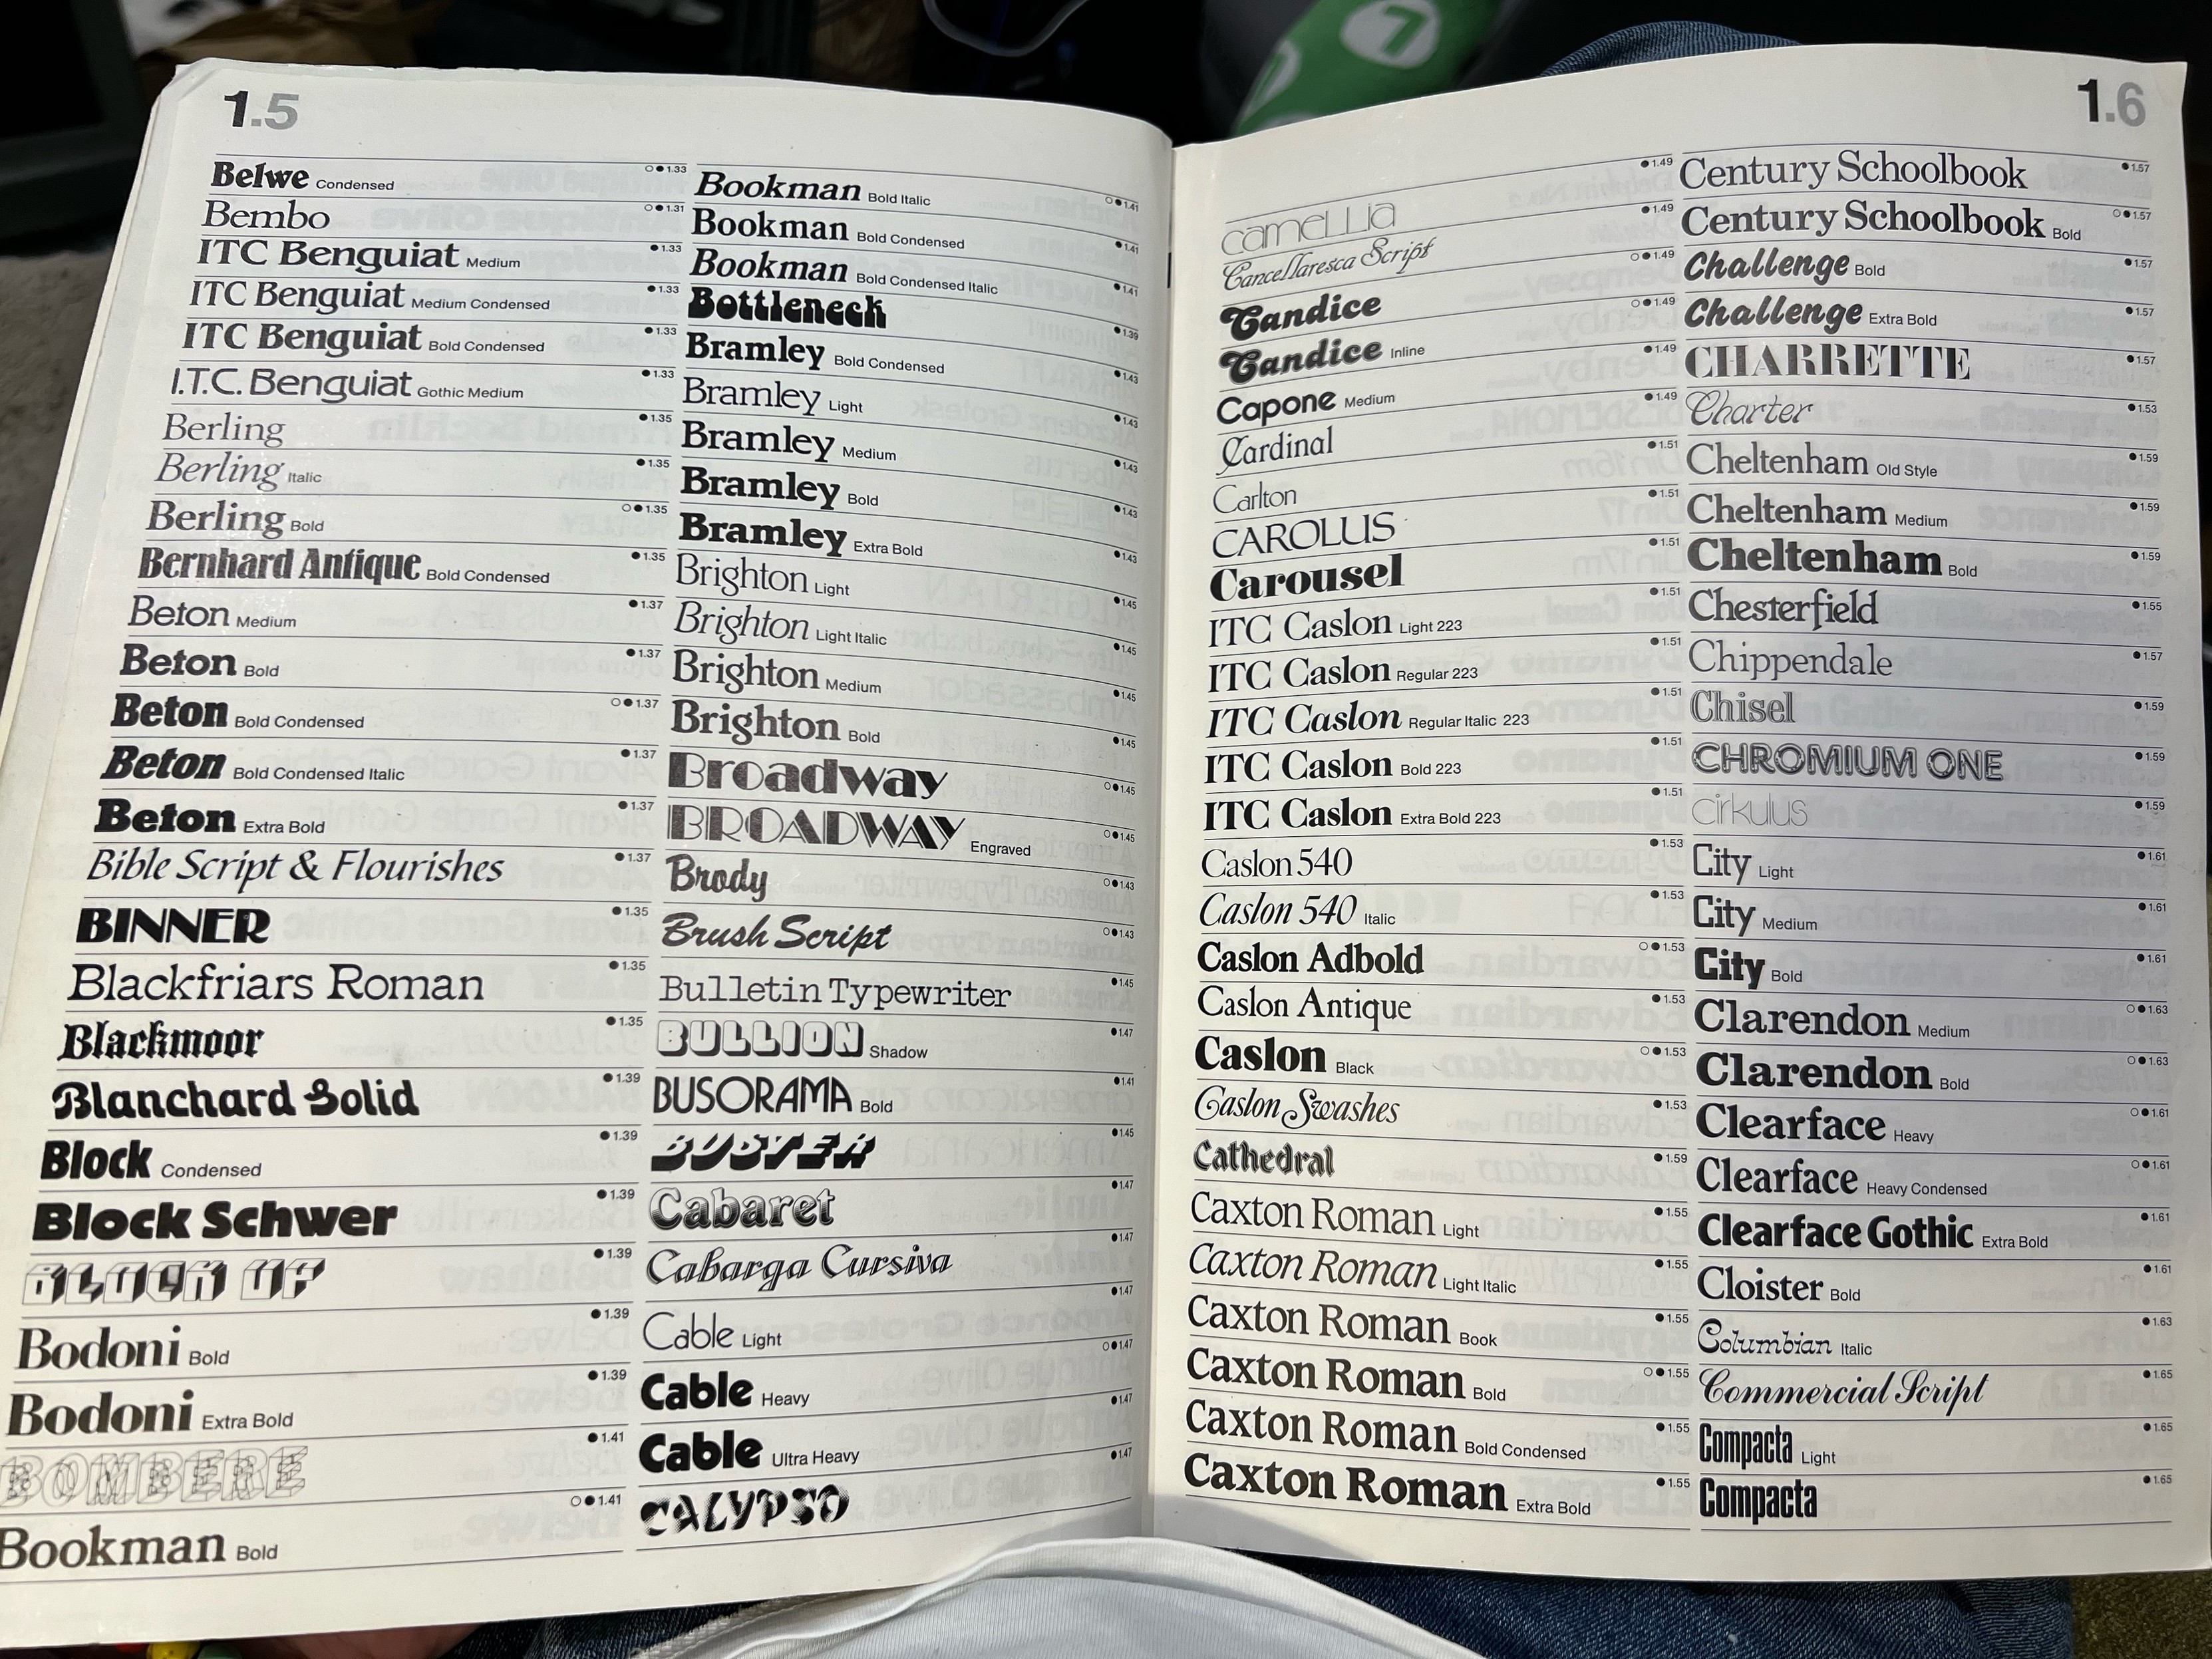 7
1.5
Belwe Condensed ○●1.33
Bembo ○●1.31
ITC Benguiat Medium ●1.33
ITC Benguiat Medium Condensed ●1.33
ITC Benguiat Bold Condensed ●1.33
I.T.C. Benguiat Gothic Medium ●1.33
Berling ●1.35
Berling Italic ●1.35
Berling Bold ○●1.35
Bernhard Antique Bold Condensed ●1.35
Beton Medium ●1.37
Beton Bold ●1.37
Beton Bold Condensed ○●1.37
Beton Bold Condensed Italic ●1.37
Beton Extra Bold ●1.37
Bible Script & Flourishes ●1.37
BINNER ●1.35
Blackfriars Roman ●1.35
Blackmoor ●1.35
Blanchard Solid ●1.39
Block Condensed ●1.39
Block Schwer ●1.39
BLOCK UP ●1.39
Bodoni Bold ●1.39
Bodoni Extra Bold ●1.39
BOMBERE ●1.41
Bookman Bold ○●1.41
Bookman Bold Italic ○●1.41
Bookman Bold Condensed ●1.41
Bookman Bold Condensed Italic ●1.41
Bottleneck ●1.39
Bramley Bold Condensed ●1.43
Bramley Light ●1.43
Bramley Medium ●1.43
Bramley Bold ●1.43
Bramley Extra Bold ●1.43
Brighton Light ●1.45
Brighton Light Italic ●1.45
Brighton Medium ●1.45
Brighton Bold ●1.45
Broadway ○●1.45
BROADWAY Engraved ○●1.45
Brody ○●1.43
Brush Script ○●1.43
Bulletin Typewriter ●1.45
BULLION Shadow ●1.47
BUSORAMA Bold ●1.41
BUSTER ●1.45
Cabaret ●1.47
Cabarga Cursiva ●1.47
Cable Light ●1.47
Cable Heavy ○●1.47
Cable Ultra Heavy ●1.47
CALYPSO ●1.47
1.6
camellia ●1.49
Cancellaresca Script ●1.49
Candice ○●1.49
Candice Inline ○●1.49
Capone Medium ●1.49
Cardinal ●1.49
Carlton ●1.51
CAROLUS ●1.51
Carousel ●1.51
ITC Caslon Light 223 ●1.51
ITC Caslon Regular 223 ●1.51
ITC Caslon Regular Italic 223 ●1.51
ITC Caslon Bold 223 ●1.51
ITC Caslon Extra Bold 223 ●1.51
Caslon 540 ●1.53
Caslon 540 Italic ●1.53
Caslon Adbold ○●1.53
Caslon Antique ●1.53
Caslon Black ○●1.53
Caslon Swashes ●1.53
Cathedral ●1.59
Caxton Roman Light ●1.55
Caxton Roman Light Italic ●1.55
Caxton Roman Book ●1.55
Caxton Roman Bold ○●1.55
Caxton Roman Bold Condensed ●1.55
Caxton Roman Extra Bold ●1.55
Century Schoolbook ●1.57
Century Schoolbook Bold ○●1.57
Challenge Bold ●1.57
Challenge Extra Bold ●1.57
CHARRETTE ●1.57
Charter ●1.53
Cheltenham Old Style ●1.59
Cheltenham Medium ●1.59
Cheltenham Bold ●1.59
Chesterfield ●1.55
Chippendale ●1.57
Chisel ●1.59
CHROMIUM ONE ●1.59
cirkulus ●1.59
City Light ●1.61
City Medium ●1.61
City Bold ●1.61
Clarendon Medium ○●1.63
Clarendon Bold ○●1.63
Clearface Heavy ○●1.61
Clearface Heavy Condensed ○●1.61
Clearface Gothic Extra Bold ●1.61
Cloister Bold ●1.61
Columbian Italic ●1.63
Commercial Script ●1.65
Compacta Light ●1.65
Compacta ●1.65